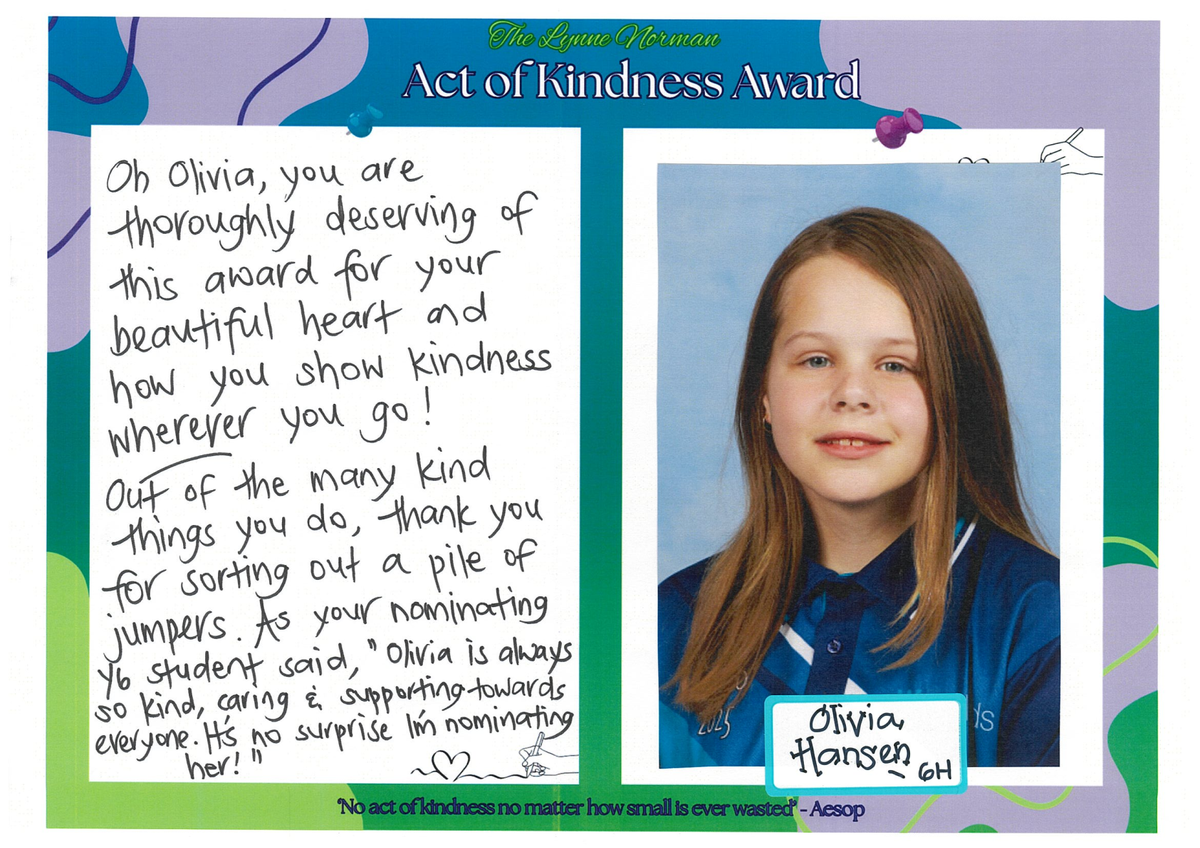 The Lynne Norman
Act of Kindness Award
Oh Olivia, you are
thoroughly deserving of
this award for your
beautiful heart and
how you show kindness
wherever you go!
Out of the many kind
things you do, thank you
for sorting out a pile of
jumpers. As your nominating
Y6 student said, "Olivia is always
so kind, caring & supporting towards
everyone. It's no surprise I'm nominating
her!"
2025
ds
Olivia
Hansen 6H
'No act of kindness no matter how small is ever wasted' - Aesop